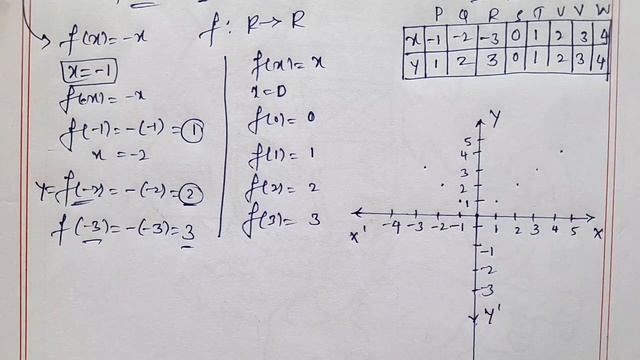 f(x) = -x
f: R→R
x = -1
f(x) = -x
f(-1) = -(-1) = 1
x = -2
Y = f(-2) = -(-2) = 2
f(-3) = -(-3) = 3
f(x) = x
x = 0
f(0) = 0
f(1) = 1
f(2) = 2
f(3) = 3
P Q R S T U V W
X -1 -2 -3 0 1 2 3 4
Y 1 2 3 0 1 2 3 4
Y
5
4
3
2
1
X' -4 -3 -2 -1 1 2 3 4 5 X
-1
-2
-3
Y'